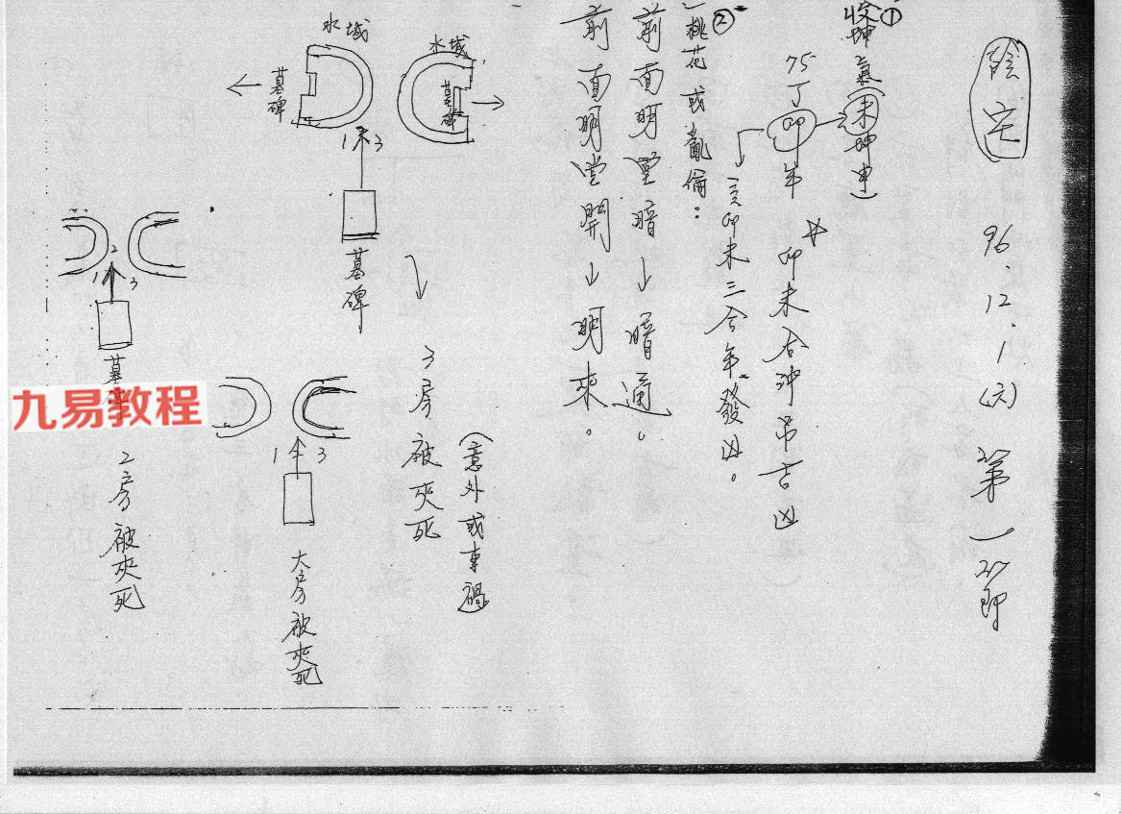 陰宅
96.12.1(六)
第一節
①收坤氣(未坤申)
75丁卯年
卯未合沖吊吉凶
亥卯未三合年發凶。
②桃花或亂倫:
前面明堂暗↓暗通。
前面明堂開↓明來。
水域
墓碑
水域
墓碑
1 3
墓碑
3房被夾死
(意外或車禍)
2
1 3
墓碑
2房被夾死
1 3
大房被夾死
九易教程